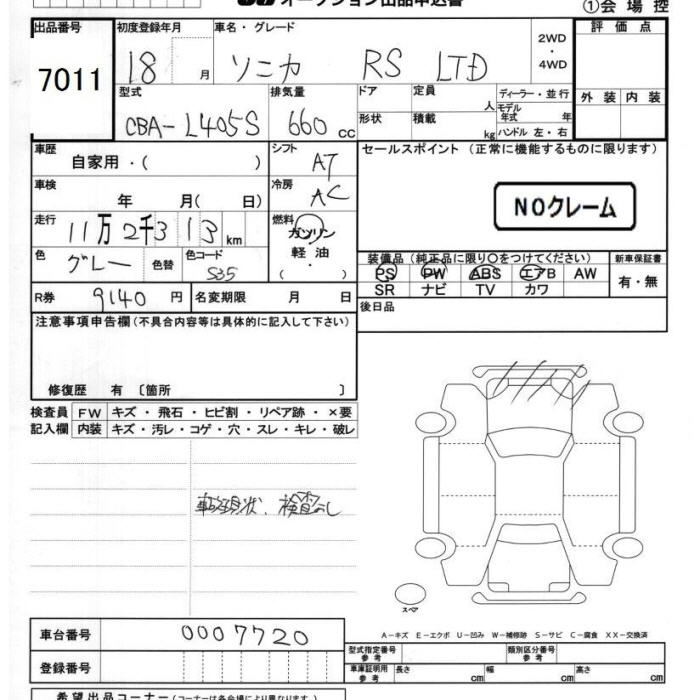 オークション出品申込書 ①会場控
出品番号 初度登録年月 車名・グレード 2WD ・ 4WD 評価点
7011 18 月 ソニカ RS LTD
型式 排気量 ドア 定員 人 ディーラー・並行 外装 内装
CBA-L405S 660 cc 形状 積載 kg モデル年式 年 ハンドル 左・右
車歴 自家用・( ) シフト AT セールスポイント(正常に機能するものに限ります)
車検 年 月( 日) 冷房 AC NOクレーム
走行 11万2千313km 燃料 ガソリン 軽油 ・ ( )
色 グレー 色替 色コード S35 装備品(純正品に限り〇をつけてください) 新車保証書
PS PW ABS エアB AW 有・無
SR ナビ TV カワ
R券 9140 円 名変期限 月 日 後日品
注意事項申告欄(不具合内容等は具体的に記入して下さい)
修復歴 有〔箇所 〕
検査員 FW キズ・飛石・ヒビ割・リペア跡・×要
記入欄 内装 キズ・汚レ・コゲ・穴・スレ・キレ・破レ
現状、検査なし
スペア
A-キズ E-エクボ U-凹み W-補修跡 S-サビ C-腐食 XX-交換済
車台番号 0007720
型式指定番号 参考 類別区分番号 参考
登録番号 車庫証明用 参考 長さ cm 幅 cm 高さ cm
希望出品コーナー(コーナーは各会場により異なります)